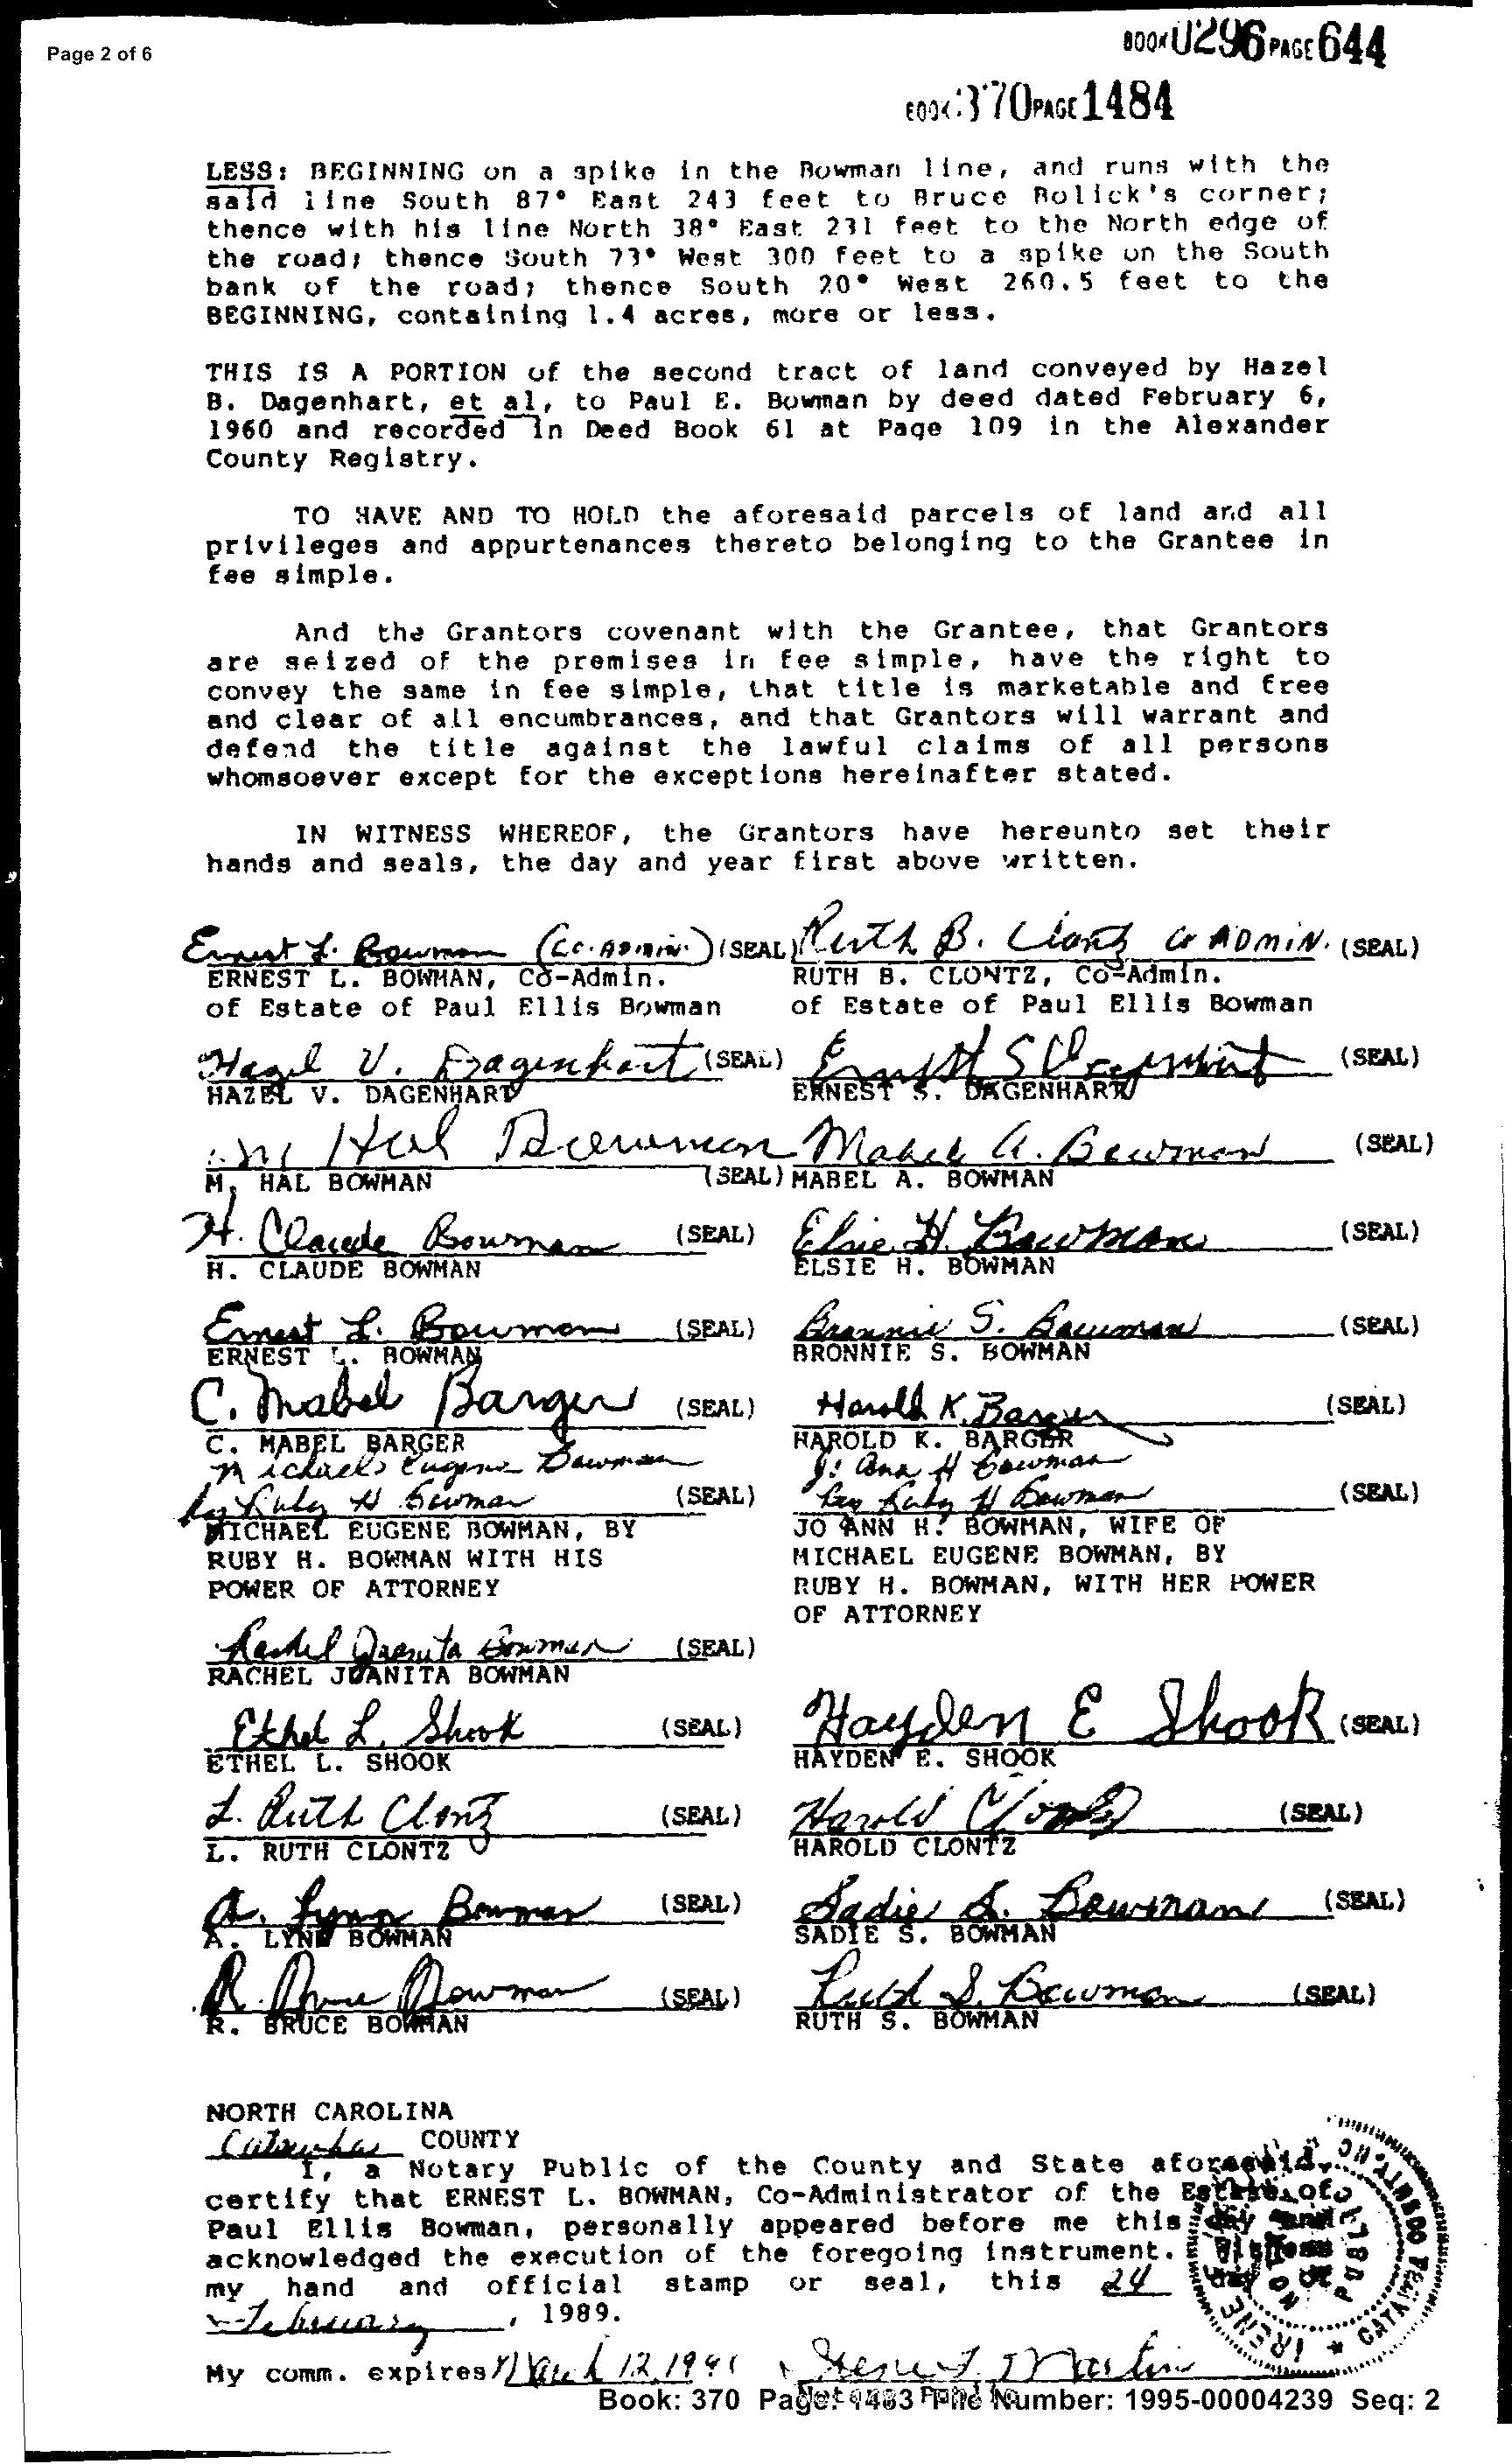 Page 2 of 6
BOOK 0296 PAGE 644
BOOK 370 PAGE 1484
LESS: BEGINNING on a spike in the Bowman line, and runs with the
said line South 87° East 243 feet to Bruce Bolick's corner;
thence with his line North 38° East 231 feet to the North edge of
the road; thence South 73° West 300 feet to a spike on the South
bank of the road; thence South 20° West 260.5 feet to the
BEGINNING, containing 1.4 acres, more or less.
THIS IS A PORTION of the second tract of land conveyed by Hazel
B. Dagenhart, et al, to Paul E. Bowman by deed dated February 6,
1960 and recorded in Deed Book 61 at Page 109 in the Alexander
County Registry.
TO HAVE AND TO HOLD the aforesaid parcels of land and all
privileges and appurtenances thereto belonging to the Grantee in
fee simple.
And the Grantors covenant with the Grantee, that Grantors
are seized of the premises in fee simple, have the right to
convey the same in fee simple, that title is marketable and free
and clear of all encumbrances, and that Grantors will warrant and
defend the title against the lawful claims of all persons
whomsoever except for the exceptions hereinafter stated.
IN WITNESS WHEREOF, the Grantors have hereunto set their
hands and seals, the day and year first above written.
Ernest L. Bowman (Co-Admin.) (SEAL) Ruth B. Clontz Co ADMIN. (SEAL)
ERNEST L. BOWMAN, Co-Admin. RUTH B. CLONTZ, Co-Admin.
of Estate of Paul Ellis Bowman of Estate of Paul Ellis Bowman
Hazel V. Dagenhart (SEAL) Ernest S Dagenhart (SEAL)
HAZEL V. DAGENHART ERNEST S. DAGENHART
M Hal Bowman Mabel A. Bowman (SEAL)
M. HAL BOWMAN (SEAL) MABEL A. BOWMAN
H. Claude Bowman (SEAL) Elsie H. Bowman (SEAL)
H. CLAUDE BOWMAN ELSIE H. BOWMAN
Ernest L. Bowman (SEAL) Bronnie S. Bowman (SEAL)
ERNEST L. BOWMAN BRONNIE S. BOWMAN
C. Mabel Barger (SEAL) Harold K. Barger (SEAL)
C. MABEL BARGER HAROLD K. BARGER
Michael Eugene Bowman Jo Ann H Bowman
by Ruby H Bowman (SEAL) by Ruby H Bowman (SEAL)
MICHAEL EUGENE BOWMAN, BY JO ANN H. BOWMAN, WIFE OF
RUBY H. BOWMAN WITH HIS MICHAEL EUGENE BOWMAN, BY
POWER OF ATTORNEY RUBY H. BOWMAN, WITH HER POWER
OF ATTORNEY
Rachel Juanita Bowman (SEAL)
RACHEL JUANITA BOWMAN
Ethel L. Shook (SEAL) Hayden E Shook (SEAL)
ETHEL L. SHOOK HAYDEN E. SHOOK
L. Ruth Clontz (SEAL) Harold Clontz (SEAL)
L. RUTH CLONTZ HAROLD CLONTZ
A. Lynn Bowman (SEAL) Sadie S. Bowman (SEAL)
A. LYNN BOWMAN SADIE S. BOWMAN
R. Bruce Bowman (SEAL) Ruth S. Bowman (SEAL)
R. BRUCE BOWMAN RUTH S. BOWMAN
NORTH CAROLINA
Catawba COUNTY
I, a Notary Public of the County and State aforesaid,
certify that ERNEST L. BOWMAN, Co-Administrator of the Estate of
Paul Ellis Bowman, personally appeared before me this day and
acknowledged the execution of the foregoing instrument. Witness
my hand and official stamp or seal, this 24 day of
February, 1989.
My comm. expires March 12, 1991 Irene L. Martin
Book: 370 Page: 1483 File Number: 1995-00004239 Seq: 2